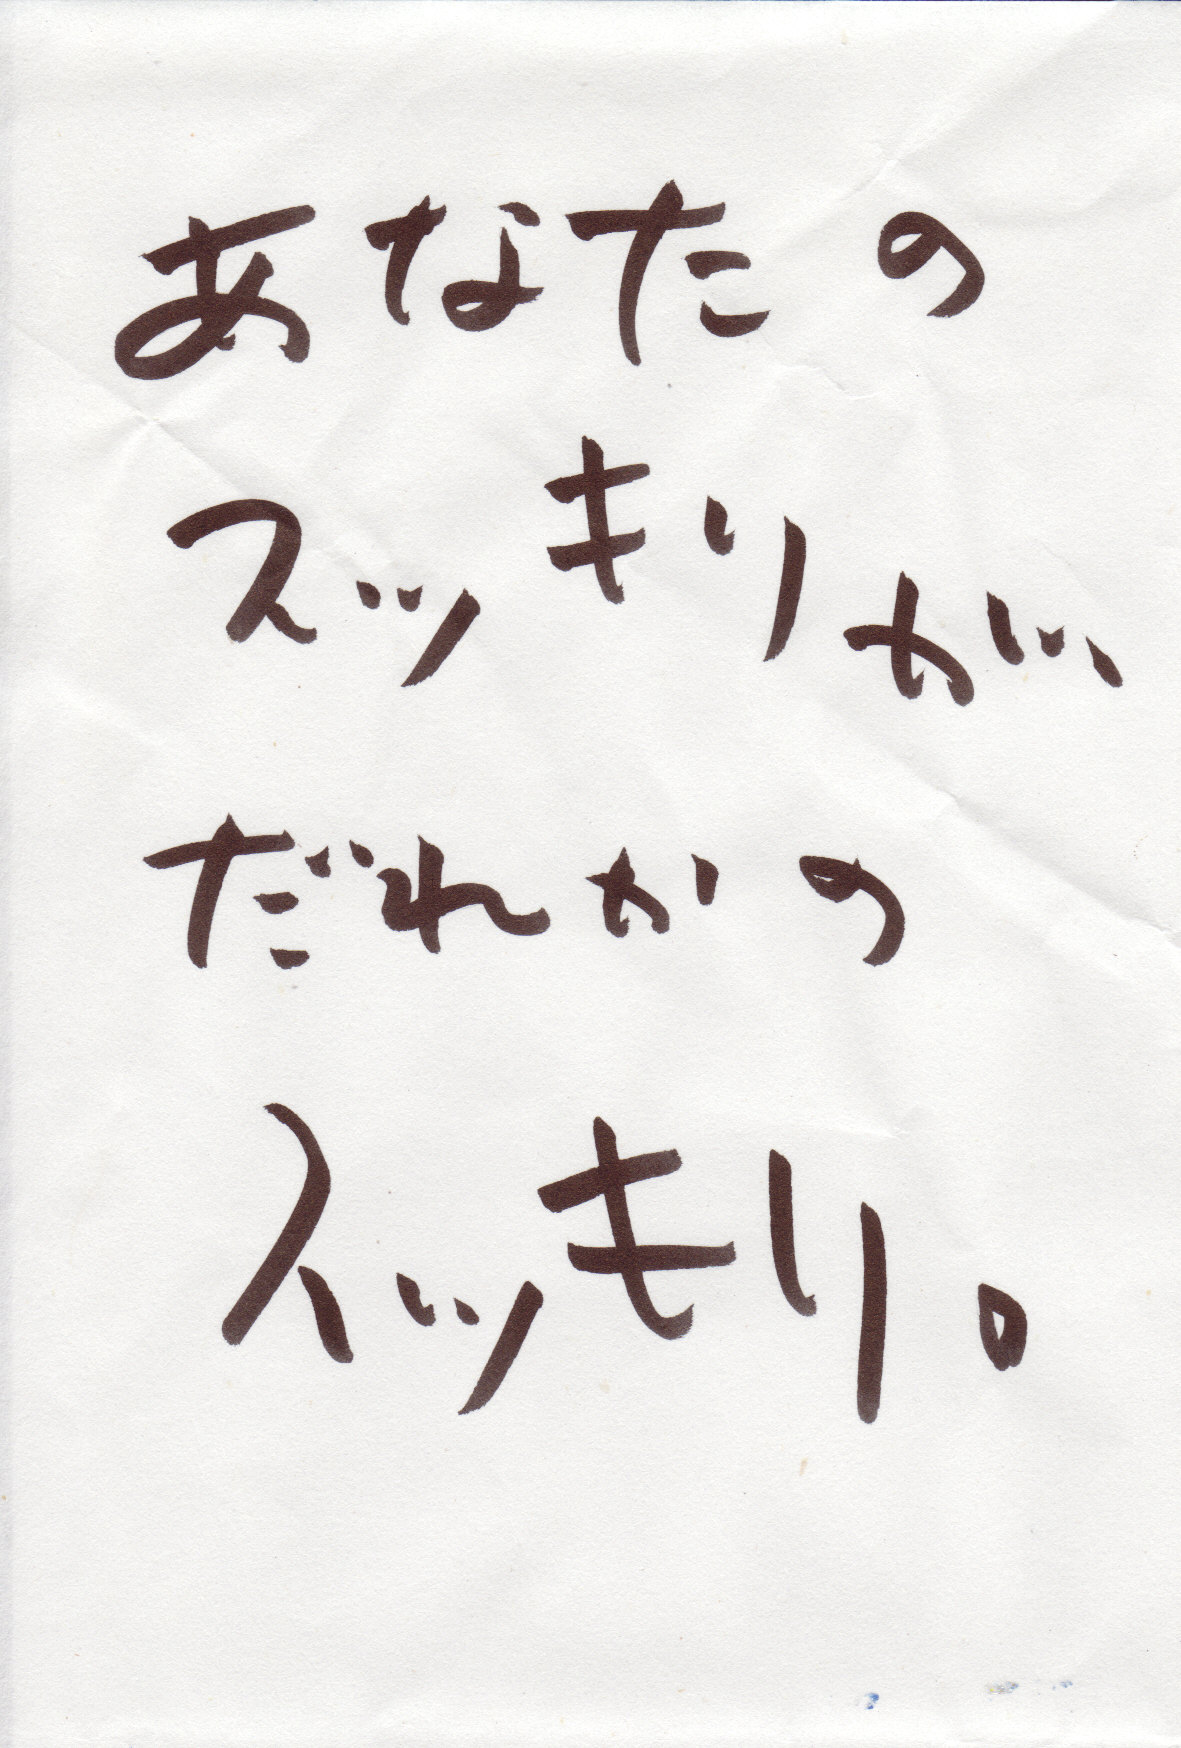 あなたの
スッキリが、
だれかの
スッキリ。